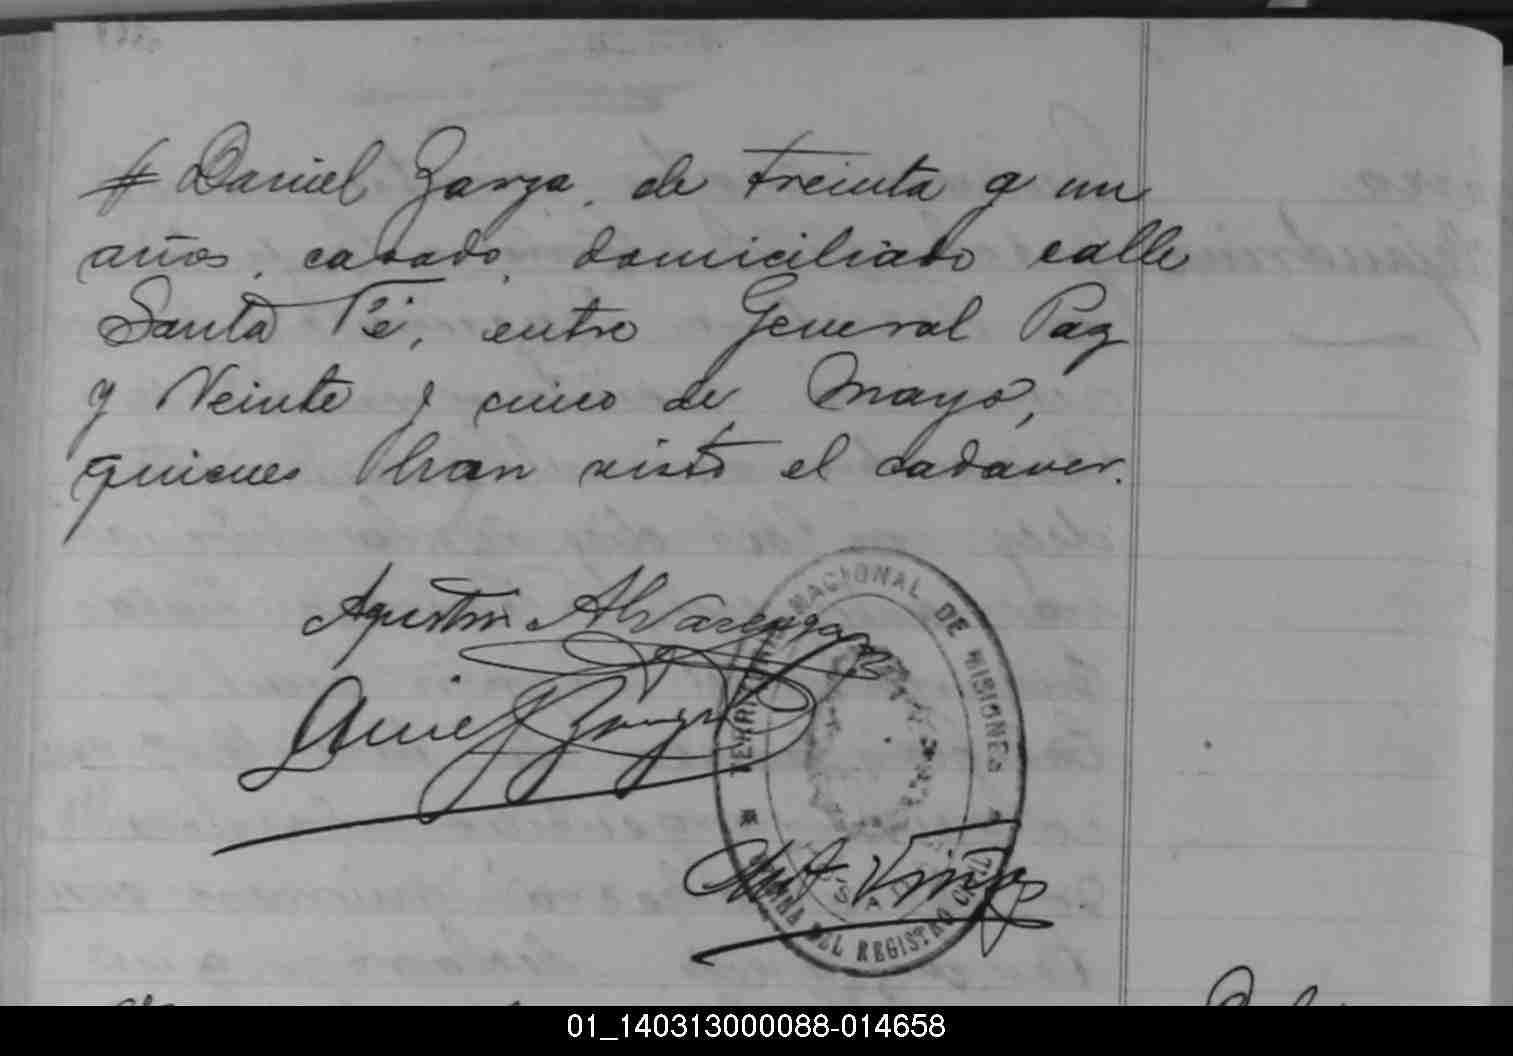 # Daniel Zarza, de treinta y un
años, casado, domiciliado calle
Santa Fé, entre General Paz
y Veinte y cinco de Mayo,
quienes han visto el cadaver.
Agustin Alvarenga
Daniel Zarza
TERRITORIO NACIONAL DE MISIONES
DEL REGISTRO CIVIL
01_140313000088-014658